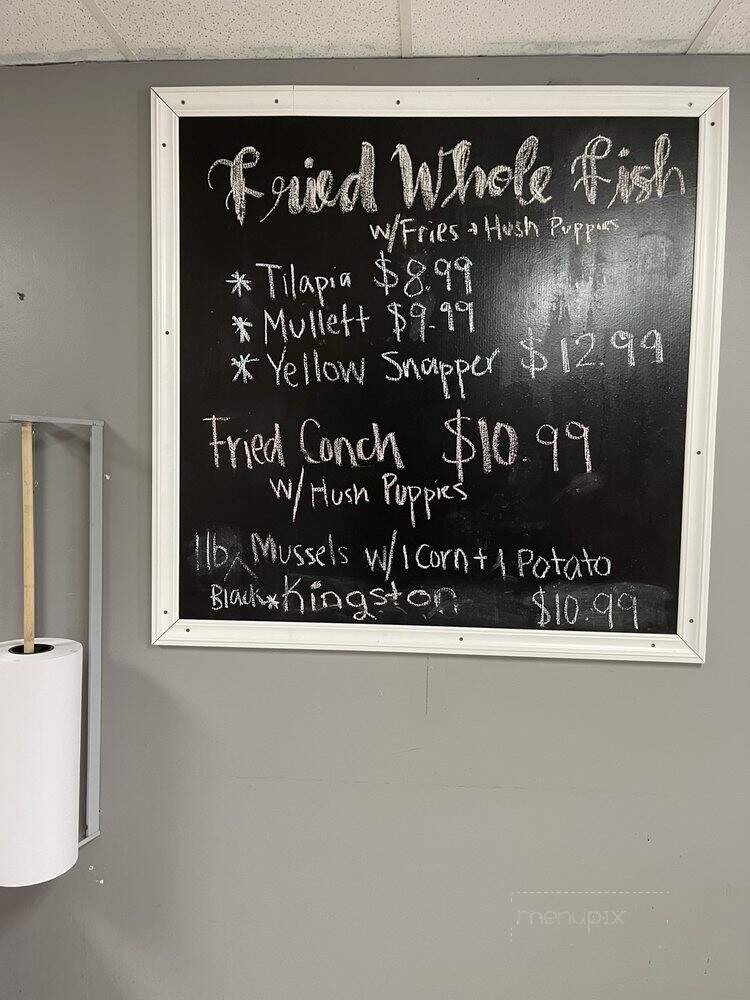 Fried Whole Fish
w/Fries + Hush Puppies
* Tilapia $8.99
* Mullett $9.99
* Yellow Snapper $12.99
Fried Conch $10.99
w/Hush Puppies
1lb ^ Mussels w/1 Corn + 1 Potato
Black * Kingston $10.99
menupix